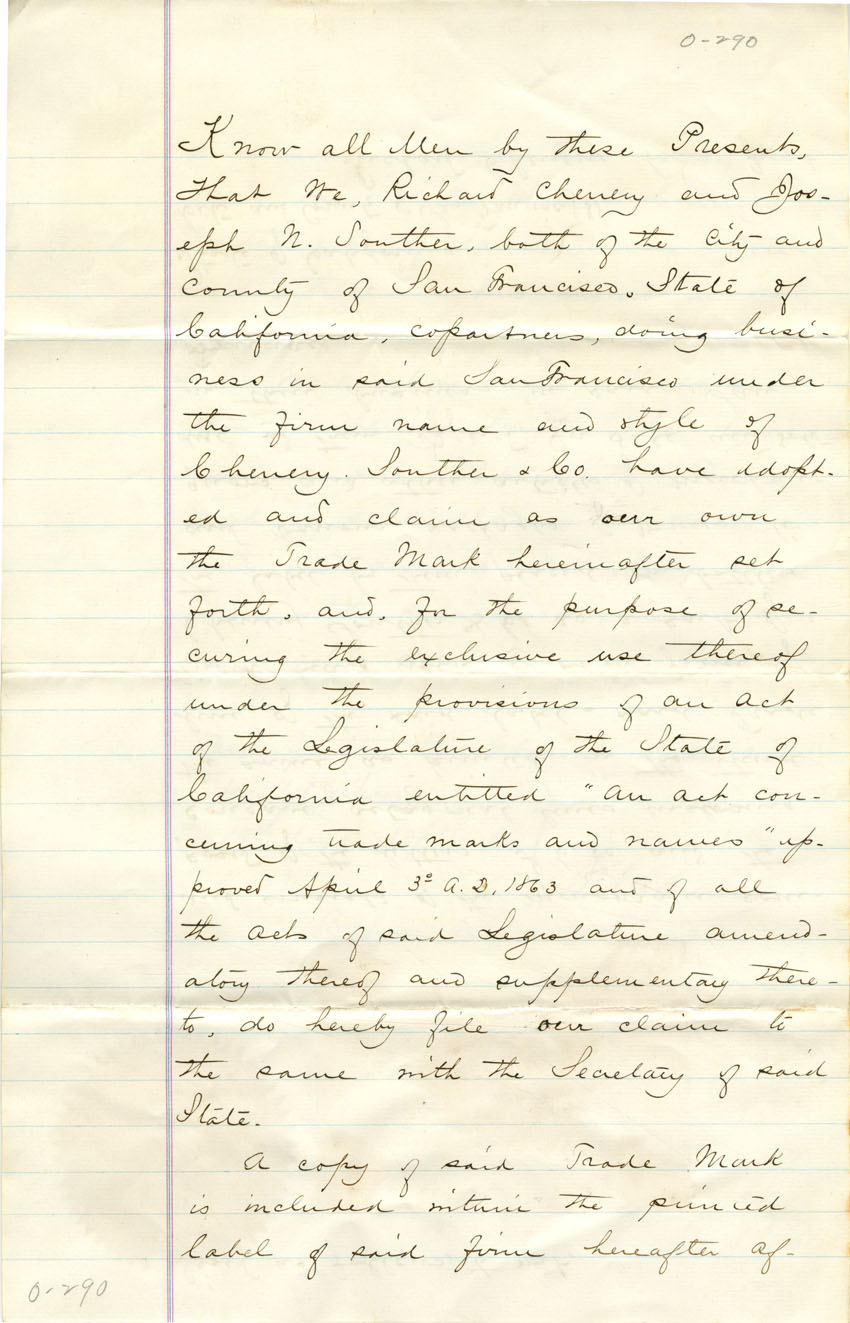 0-290
Know all Men by these Presents,
that We, Richard Chenery and Jos-
eph N. Souther, both of the City and
County of San Francisco, State of
California, copartners, doing busi-
ness in said San Francisco under
the firm name and style of
Chenery. Souther & Co. have adopt-
ed and claim as our own
the Trade Mark hereinafter set
forth, and, for the purpose of se-
curing the exclusive use thereof
under the provisions of an act
of the Legislature of the State of
California entitled "An act con-
cerning trade marks and names" ap-
proved April 3d A.D. 1863 and of all
the acts of said Legislature amend-
atory thereof and supplementary there-
to, do hereby file our claim to
the same with the Secretary of said
State.
A copy of said Trade Mark
is included within the printed
label of said firm hereafter af-
0-290